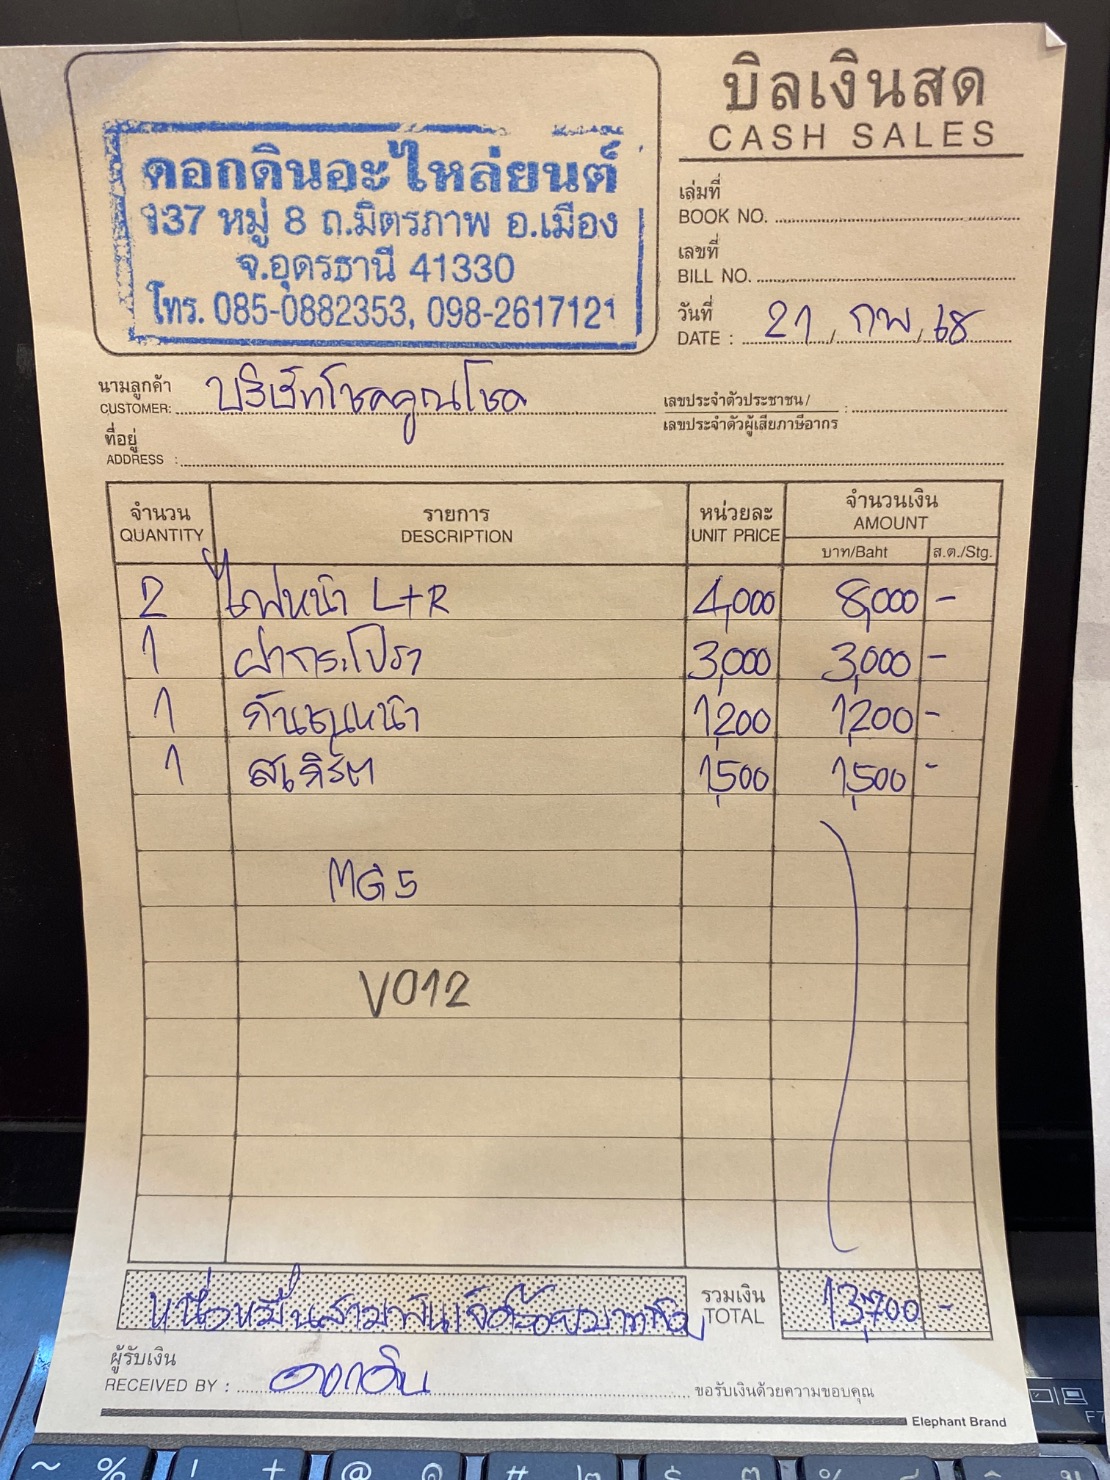 บิลเงินสด
CASH SALES
ดอกดินอะไหล่ยนต์
137 หมู่ 8 ถ.มิตรภาพ อ.เมือง
จ.อุดรธานี 41330
โทร. 085-0882353, 098-2617121
เล่มที่
BOOK NO.
เลขที่
BILL NO.
วันที่
DATE : 21 / กพ / 68
นามลูกค้า
CUSTOMER: บริษัทโชคคูณโชค
เลขประจำตัวประชาชน/
เลขประจำตัวผู้เสียภาษีอากร :
ที่อยู่
ADDRESS :
จำนวน รายการ หน่วยละ จำนวนเงิน
QUANTITY DESCRIPTION UNIT PRICE AMOUNT
บาท/Baht ส.ต./Stg.
2 ไฟหน้า L+R 4,000 8,000 -
1 ฝากระโปรง 3,000 3,000 -
1 กันชนหน้า 1,200 1,200 -
1 สเกิร์ต 1,500 1,500 -
MG5
V012
หนึ่งหมื่นสามพันเจ็ดร้อยบาทถ้วน รวมเงิน TOTAL 13,700 -
ผู้รับเงิน
RECEIVED BY : ดอกดิน ขอรับเงินด้วยความขอบคุณ
Elephant Brand
~ % ! + @ ๑ # ๒ $ ๓ % ๔
F7